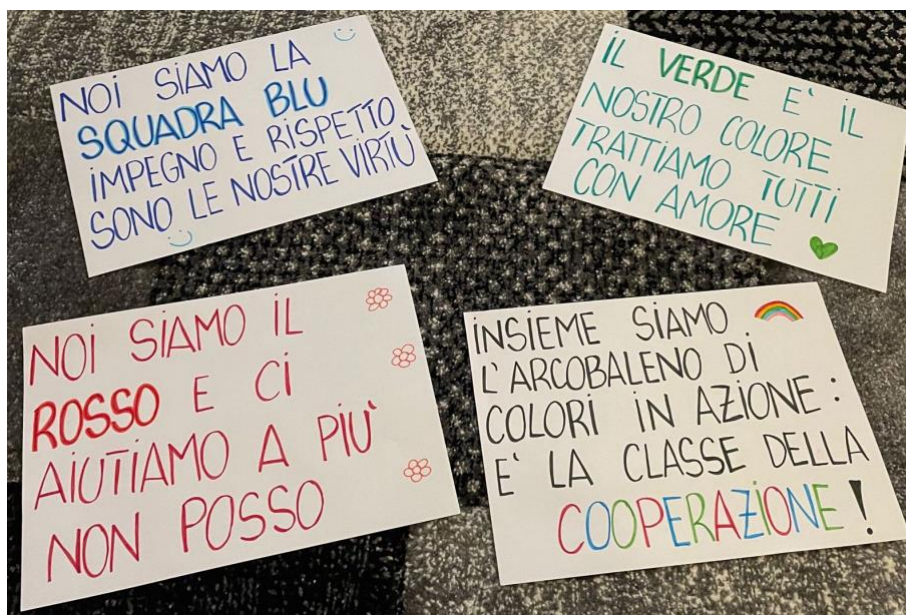 NOI SIAMO LA
SQUADRA BLU
IMPEGNO E RISPETTO
SONO LE NOSTRE VIRTÙ
IL VERDE E' IL
NOSTRO COLORE
TRATTIAMO TUTTI
CON AMORE
NOI SIAMO IL
ROSSO E CI
AIUTIAMO A PIÙ
NON POSSO
INSIEME SIAMO
L'ARCOBALENO DI
COLORI IN AZIONE:
E' LA CLASSE DELLA
COOPERAZIONE!